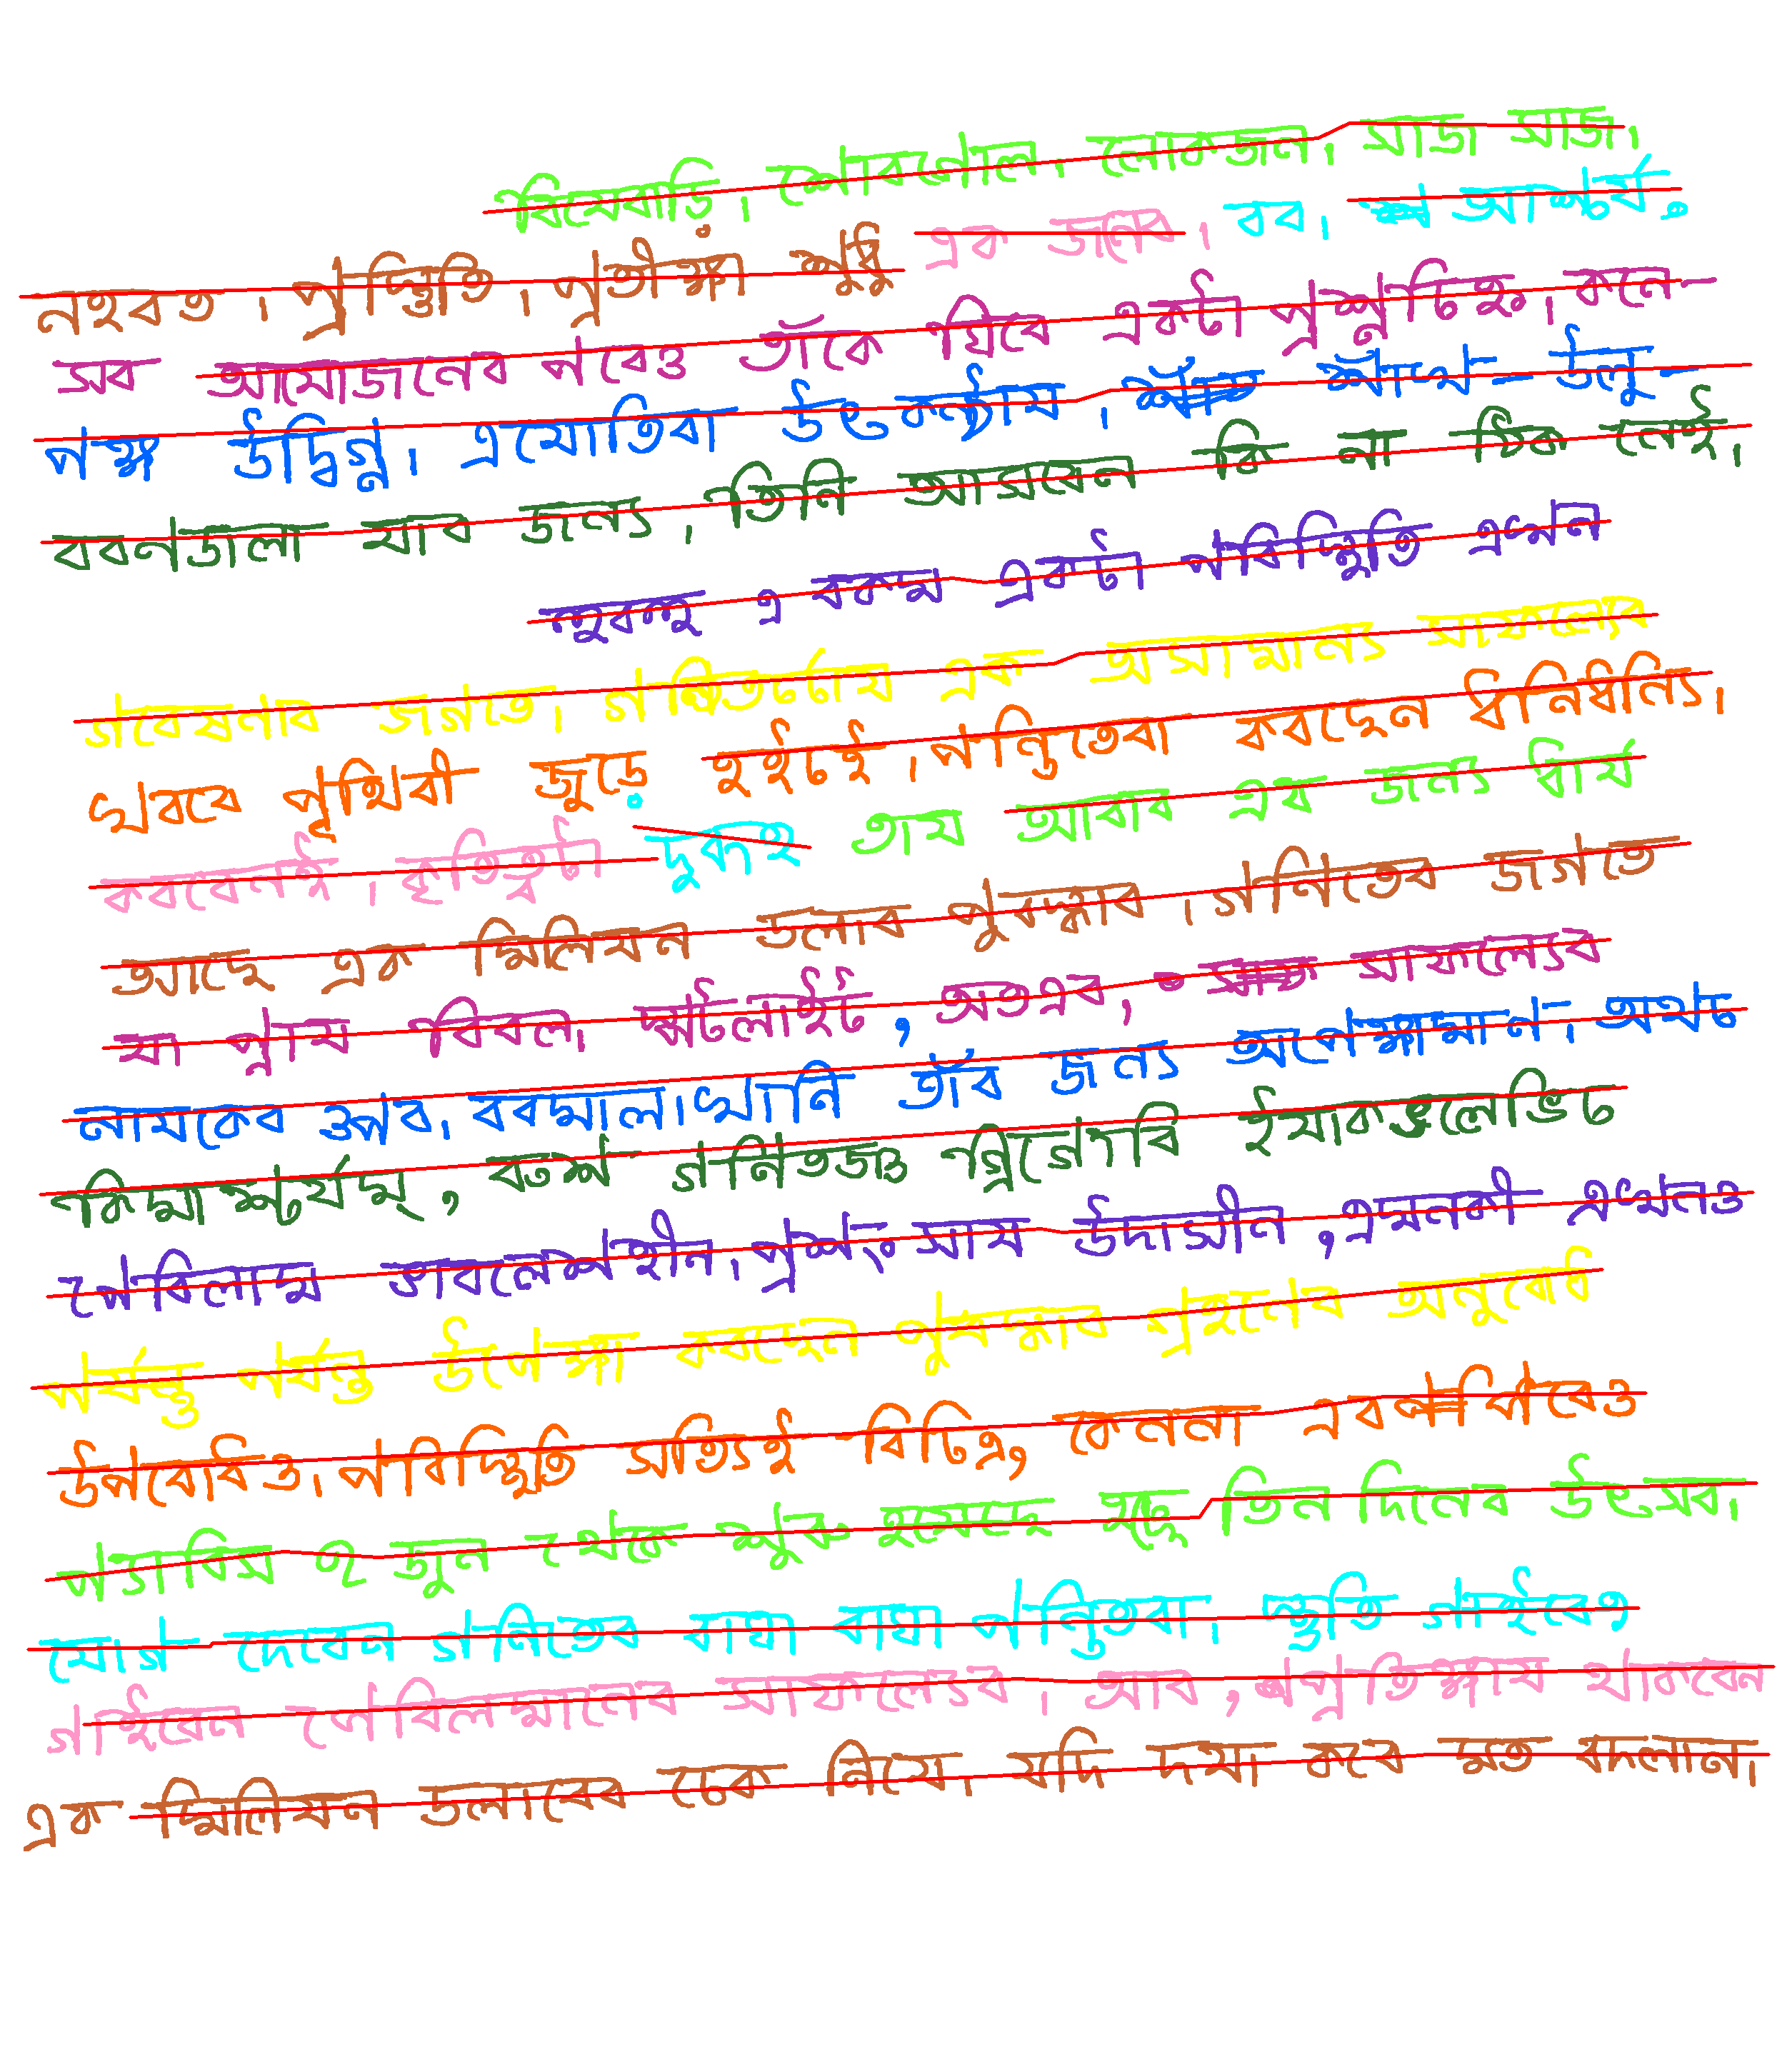 বিয়েবাড়ি। শোরগোল। লোকজন। সাজ সাজ।
নহবত। প্রস্তুতি। প্রতীক্ষা শুধু এক জনের। বর। আশ্চর্য।
সব আয়োজনের পরেও তাঁকে ঘিরে একটা প্রশ্নচিহ্ন। কনে-
পক্ষ উদ্বিগ্ন। এয়োতিরা উৎকণ্ঠায়। শাঁখ-উলু-
বরণডালা যার জন্য, তিনি আসবেন কি না ঠিক নেই।
হুবহু এ রকম একটা পরিস্থিতি এখন
গবেষণার জগতে। গণিতচর্চায় এক অসামান্য সাফল্যের
খবরে পৃথিবী জুড়ে হইচই। পণ্ডিতেরা করছেন ধন্যিধন্যি।
করবেনই। কৃতিত্বটা দুরূহ তায় আবার এর জন্য ধার্য
আছে এক মিলিয়ন ডলার পুরস্কার। গণিতের জগতে
যা প্রায় বিরল। স্পটলাইট, অতএব, সাফল্যের
নায়কের ওপর। বরমাল্যখানি তাঁর জন্য অপেক্ষামাণ। অথচ
কিমাশ্চর্যম্, রুশ গণিতজ্ঞ গ্রিগোরি ইয়াকভলেভিচ
পেরিলাম ভাবলেশহীন। প্রশংসায় উদাসীন, এমনকী এখনও
পর্যন্ত পর্যন্ত উপেক্ষা করছেন পুরস্কার গ্রহণের অনুরোধ
উপরোধও। পরিস্থিতি সত্যিই বিচিত্র, কেননা এরপরেও
প্যারিস ৭ জুন থেকে শুরু হয়েছে হচ্ছে তিন দিনের উৎসব।
যোগ দেবেন গণিতের বাঘা বাঘা পণ্ডিতরা। স্তুতি গাইবেও
গাইবেন পেরিলমানের সাফল্যের। আর, প্রতিক্ষায় থাকবেন
এক মিলিয়ন ডলারের চেক নিয়ে। যদি দয়া করে মত বদলান।